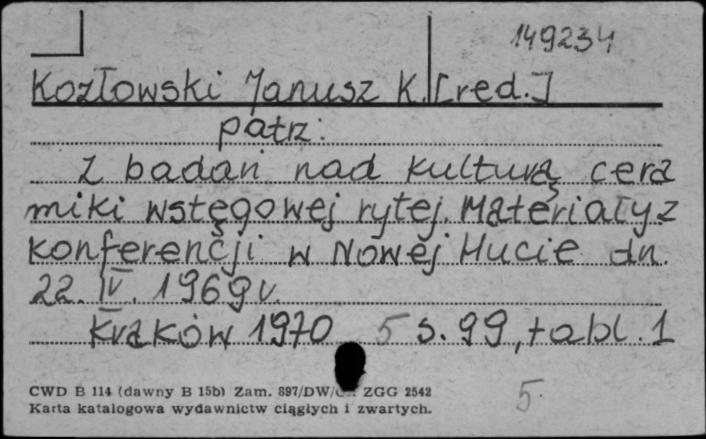 149234
Kozłowski Janusz K. [red.]
patrz:
Z badań nad kulturą cera
miki wstęgowej rytej. Materiały z
konferencji w Nowej Hucie dn.
22. IV. 1969 r.
Kraków 1970 5 s. 99, tabl. 1
CWD B 114 (dawny B 15b) Zam. 897/DW/ ZGG 2542
Karta katalogowa wydawnictw ciągłych i zwartych.
5.